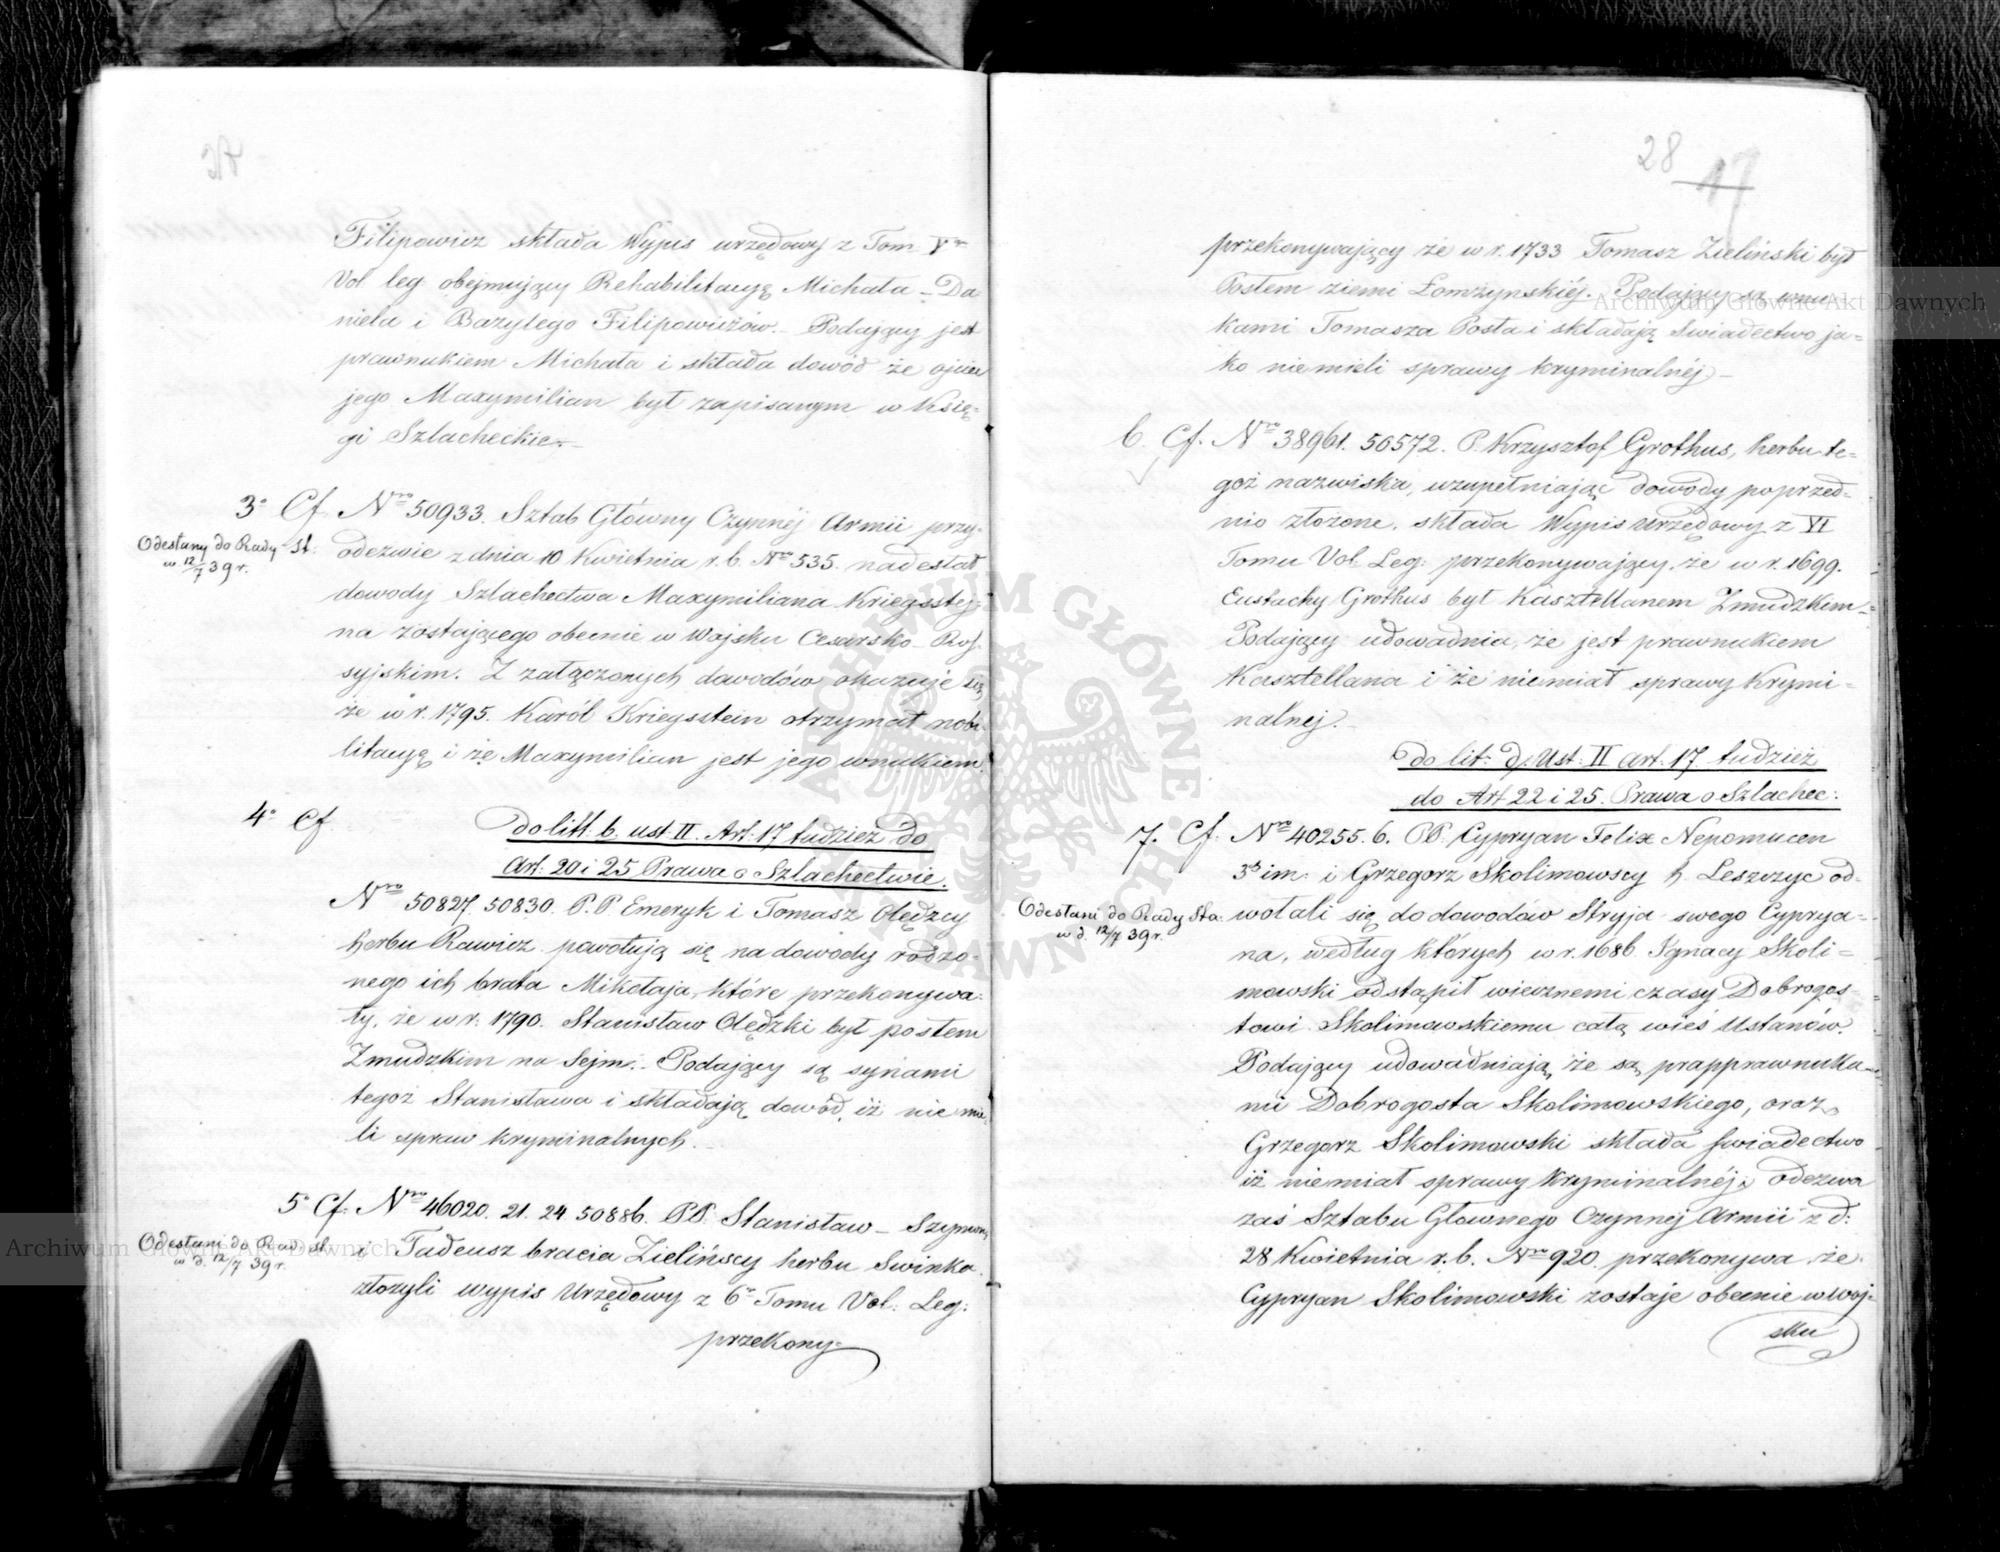 Filipowicz składa Wypis urzędowy z Tom Vго
Vol leg obejmujący Rehabilitacyą Michała – Da
niela i Bazylego Filipowiczów. – Podający jest
prawnukiem Michała i składa dowód że ojciec
jego Maxymilian był zapisanym w Księ=
gi Szlacheckie. –
3° Cf Nro 50933. Sztab Główny Czynnéj Armii przy
Odesłany do Rady St:
w 12/7 39 r.
odezwie z dnia 10 Kwietnia r. b. Nro 535. nadesłał
dowody Szlachectwa Maxymiliana Kriegsstej=
na zostającego obecnie w Wojsku Cesarsko-Ros=
syjskim. Z załączonych dowodów okazuje się
że w r. 1795. Karól Kriegsstein otrzymał nobi
litacyą i że Maxymilian jest jego wnukiem.
4° Cf
Do litt. b. ust. II. Art. 17 tudzież do
Art: 20 i 25 Prawa o Szlachectwie.
Nro 50827. 50830. P. P. Emeryk i Tomasz Olędzcy
herbu Rawicz powołują się na dowody rodzo=
nego ich brata Mikołaja, które przekonywa=
ły, że w r. 1790. Stanisław Olędzki był posłem
Zmudzkim na Sejm. – Podający są synami
tegoż Stanisława i składają dowód, iż nie mie
li spraw kryminalnych. –
5° Cf: Nro 46020. 21. 24. 50886. PP. Stanisław – Szymon
Odesłani do Rady St
w d. 12/7 39 r.
i Tadeusz bracia Zielińscy herbu Swinka
złożyli wypis Urzędowy z 6o Tomu Vol: Leg:
przekony=
28
17
przekonywający że w r. 1733 Tomasz Zieliński był
Posłem ziemi Łomżyńskiéj. Podający są wnu
kami Tomasza Posła i składają Swiadectwo ja=
ko niemieli sprawy kryminalnéj –
6. Cf. Nro 38961. 50572. P. Krzysztof Grothus, herbu te=
goż nazwiska, uzupełniając dowody poprzed=
nio złożone, składa Wypis Urzędowy z VI
Tomu Vol. Leg: przekonywający, że w r. 1699.
Eustachy Grothus był Kasztellanem Zmudzkim –
Podający udowadnia, że jest prawnukiem
Kasztellana i że niemiał sprawy krymi=
nalnej. –
do lit: d. Ust: II Art: 17 tudzież
do Art 22 i 25. Prawa o Szlachec:
7. Cf. Nro 40255. 6. PP. Cypryan Felix Nepomucen
3ch im: i Grzegorz Skolimowscy h. Leszczyc od=
Odesłani do Rady Sta:
w d. 12/7 39 r.
wołali się do dowodów Stryja swego Cyprya=
na, według których w r. 1686. Ignacy Skoli=
mowski odstąpił wiecznemi czasy Dobrogos=
towi Skolimowskiemu całą wieś Ustanów.
Podający udowadniają że są prapprawnuka=
mi Dobrogosta Skolimowskiego, oraz
Grzegorz Skolimowski składa Swiadectwo
iż niemiał sprawy kryminalnéj; odezwa
zaś Sztabu Głownego Czynnej Armii z d:
28 Kwietnia r. b. Nro 920. przekonywa że
Cypryan Skolimowski zostaje obecnie w woj=
sku
ARCHIWUM GŁÓWNE AKT DAWNYCH
Archiwum Główne Akt Dawnych
Archiwum Główne Akt Dawnych